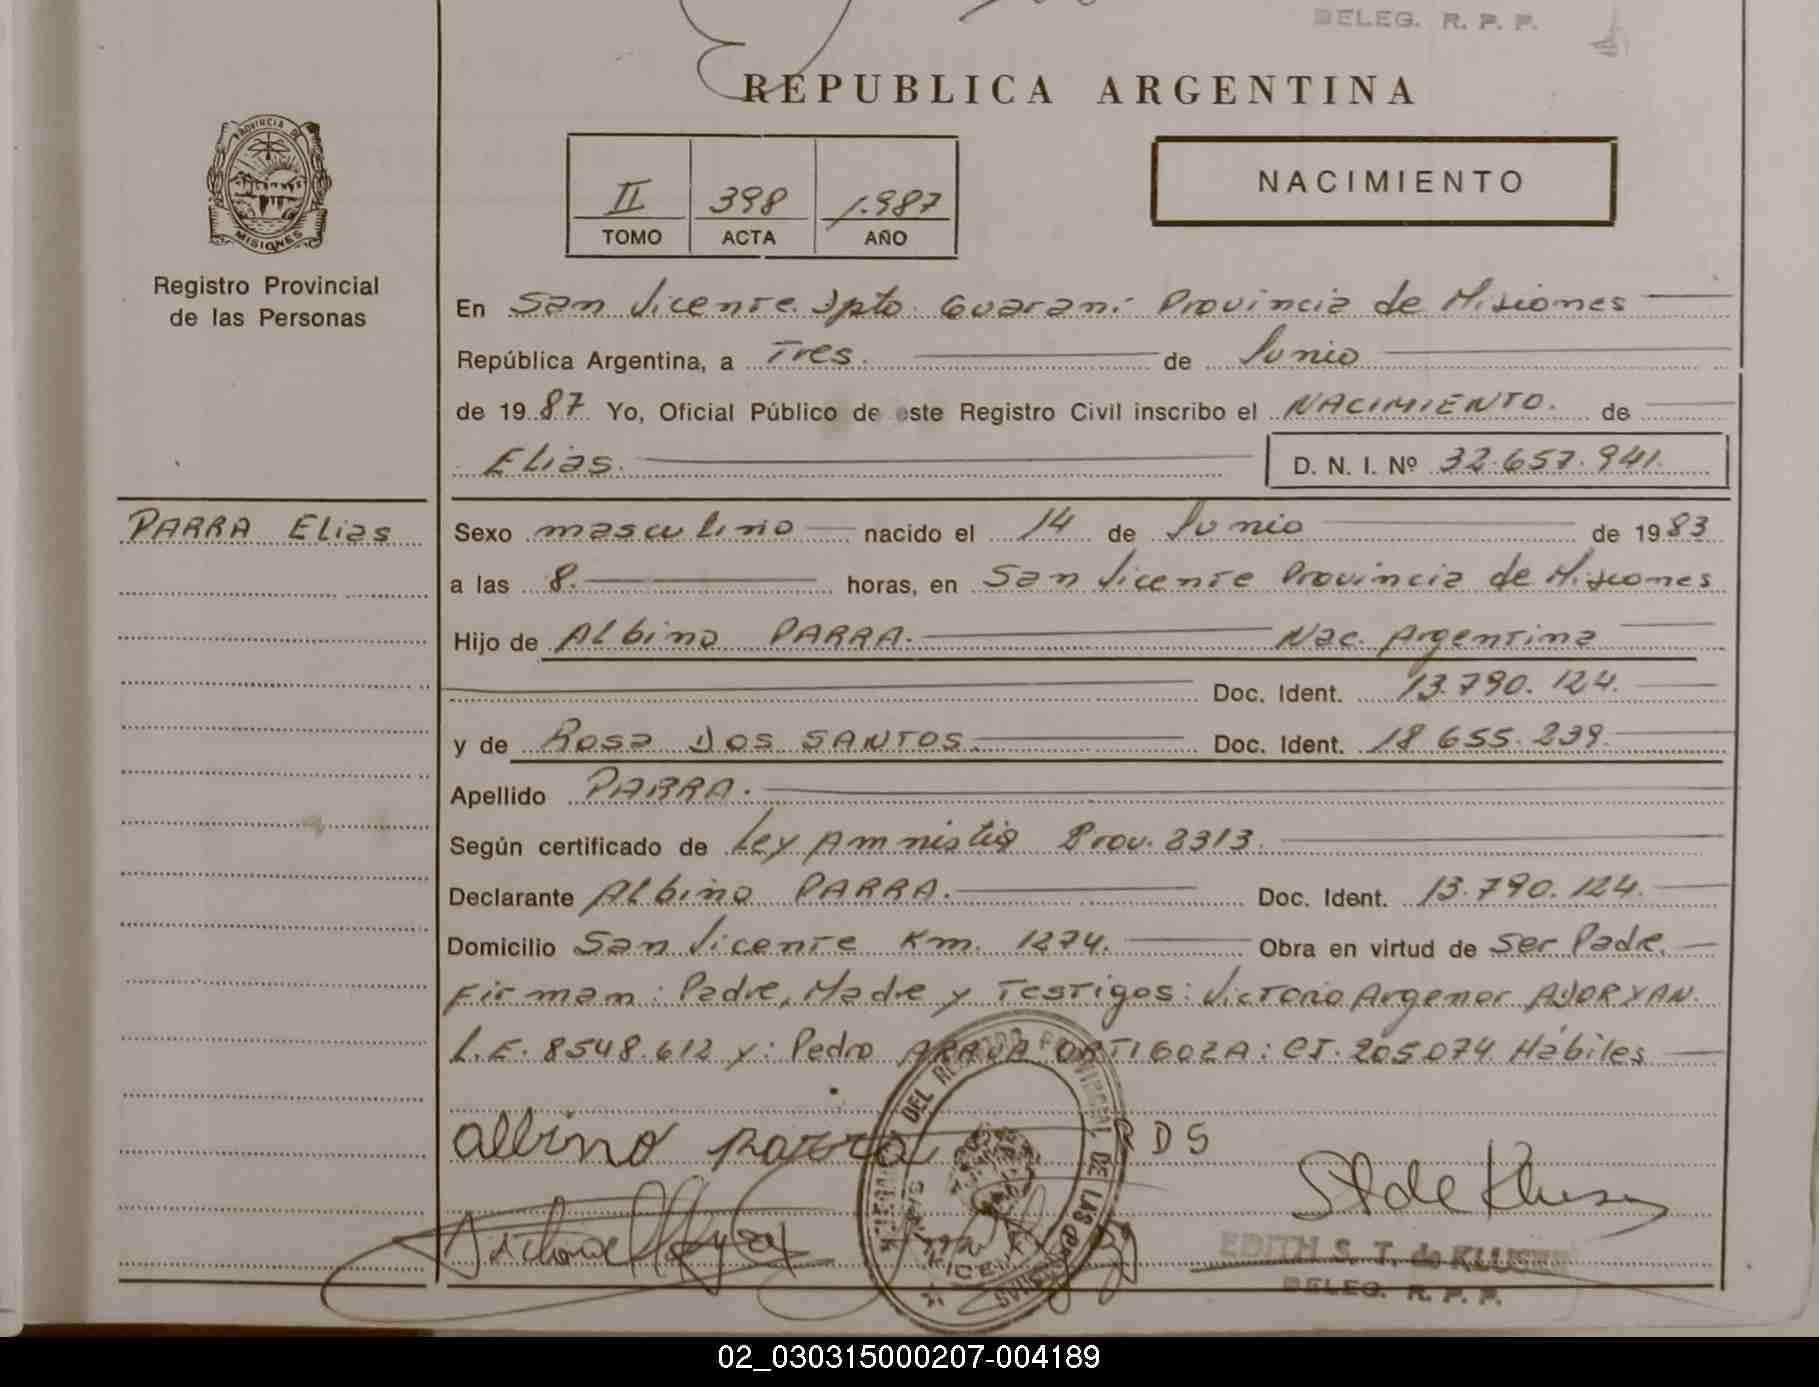 DELEG. R. P. P.
REPUBLICA ARGENTINA
PROVINCIA DE
MISIONES
Registro Provincial
de las Personas
II 398 1.987
TOMO ACTA AÑO
NACIMIENTO
En San Vicente. Dpto. Guaraní Provincia de Misiones
República Argentina, a Tres. de Junio
de 1987 Yo, Oficial Público de este Registro Civil inscribo el NACIMIENTO. de
Elias. D. N. I. Nº 32.657.941.
PARRA Elias
Sexo masculino nacido el 14 de Junio de 1983
a las 8. horas, en San Vicente Provincia de Misiones
Hijo de Albino PARRA. Nac. Argentina
Doc. Ident. 13.790.124.
y de Rosa DOS SANTOS. Doc. Ident. 18.655.239.
Apellido PARRA.
Según certificado de Ley Amnistia Prov. 2313.
Declarante Albino PARRA. Doc. Ident. 13.790.124.
Domicilio San Vicente Km. 1274. Obra en virtud de Ser Padre.
Firman: Padre, Madre y Testigos: Victorio Argemor ADORYAN.
L.E. 8548.612 y: Pedro ARAUJO ORTIGOZA: CI. 205.074 Hábiles
albino parra R D S
EDITH S. T. de KLUSEN
DELEG. R. P. P.
02_030315000207-004189